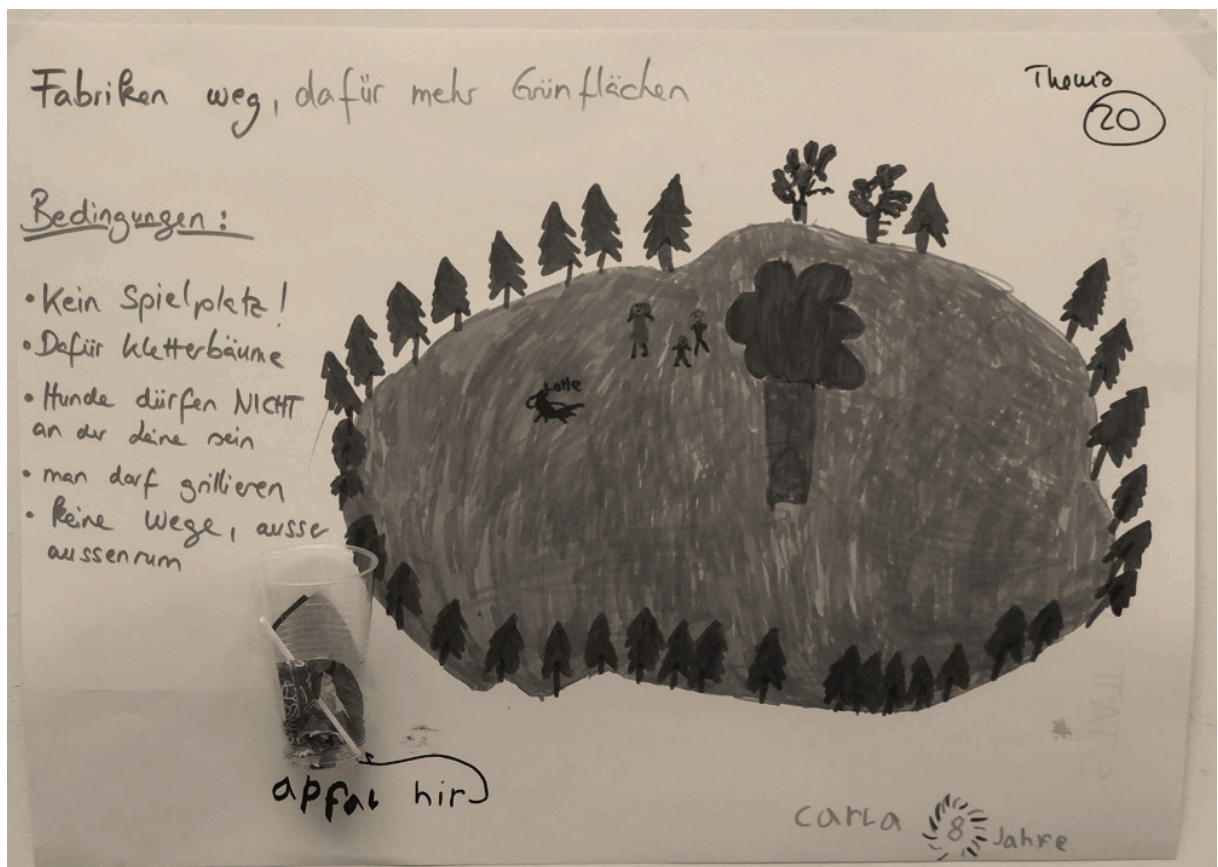 Fabriken weg, dafür mehr Grünflächen
Thema
20
Bedingungen:
• Kein Spielplatz!
• Dafür Kletterbäume
• Hunde dürfen NICHT
an der Leine sein
• man darf grillieren
• keine Wege, ausse
aussenrum
Lotte
apfal hir
carla 8 Jahre